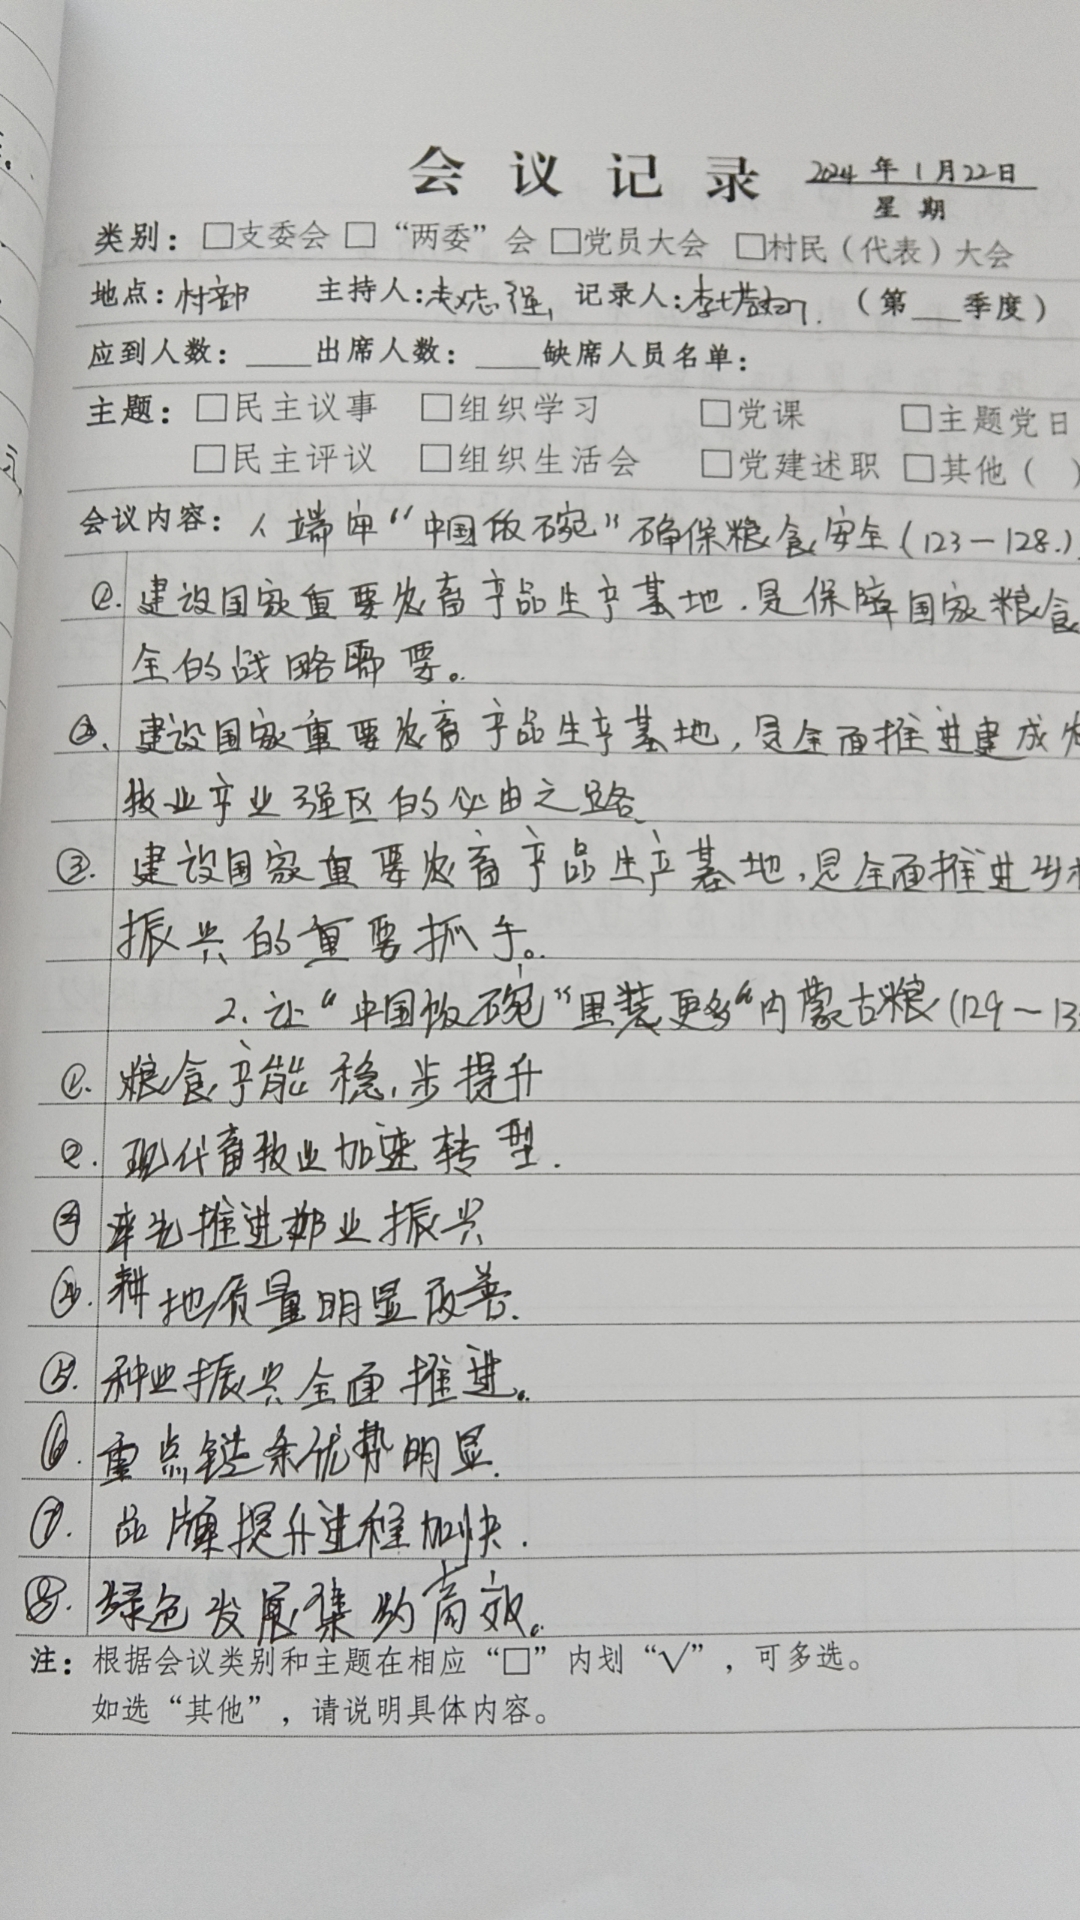 会议记录 2024年1月22日
星期
类别：□支委会 □“两委”会 □党员大会 □村民（代表）大会
地点：村部 主持人：志强 记录人：李 （第___季度）
应到人数：____出席人数：____缺席人员名单：
主题：□民主议事 □组织学习 □党课 □主题党日
□民主评议 □组织生活会 □党建述职 □其他（ ）
会议内容：1、端牢“中国饭碗”确保粮食安全（123－128.）
①.建设国家重要农畜产品生产基地，是保障国家粮食
全的战略需要。
②、建设国家重要农畜产品生产基地，是全面推进建成农
牧业产业强区的必由之路、
③.建设国家重要农畜产品生产基地，是全面推进乡村
振兴的重要抓手。
2、让“中国饭碗”里装更多“内蒙古粮（129－13
①.粮食产能稳步提升
②.现代畜牧业加速转型.
③率先推进奶业振兴
④.耕地质量明显改善.
⑤.种业振兴全面推进。
⑥.重点链条优势明显.
⑦.品牌提升进程加快.
⑧.绿色发展集约高效。
注：根据会议类别和主题在相应“□”内划“√”，可多选。
如选“其他”，请说明具体内容。